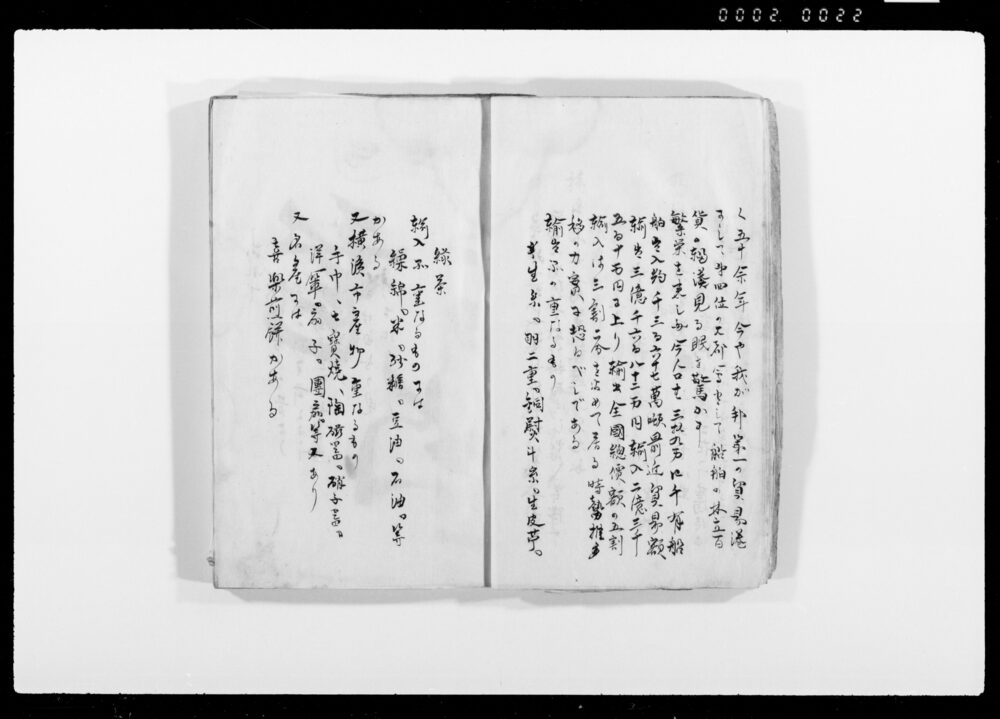 0002 0022
く五十余年今や我が邦第一の貿易港
にして第四位の
貨の輻湊見る眼を驚かす
繁栄を来し今人口を三拾九万に午有船
舶出入効千三百六十七萬噸最近貿易額
輸出三億千六百八十二万円輸入二億三千
五百十万円に上り輸出全國総價額の五割
輸入は三割二分を占めて居る時勢推
移の力實に恐るべしである
輸出品の重なるもの
生糸。羽二重。銅熨斗糸。生皮苧。
緑茶
輸入品重なるものには
繰綿。米。砂糖。豆油。石油。等
がある
又横濱市産物重なるもの
手巾、七寶焼、陶磁器。硝子器。
洋傘。扇子。團扇等又あり
又名産には
喜樂煎餅がある